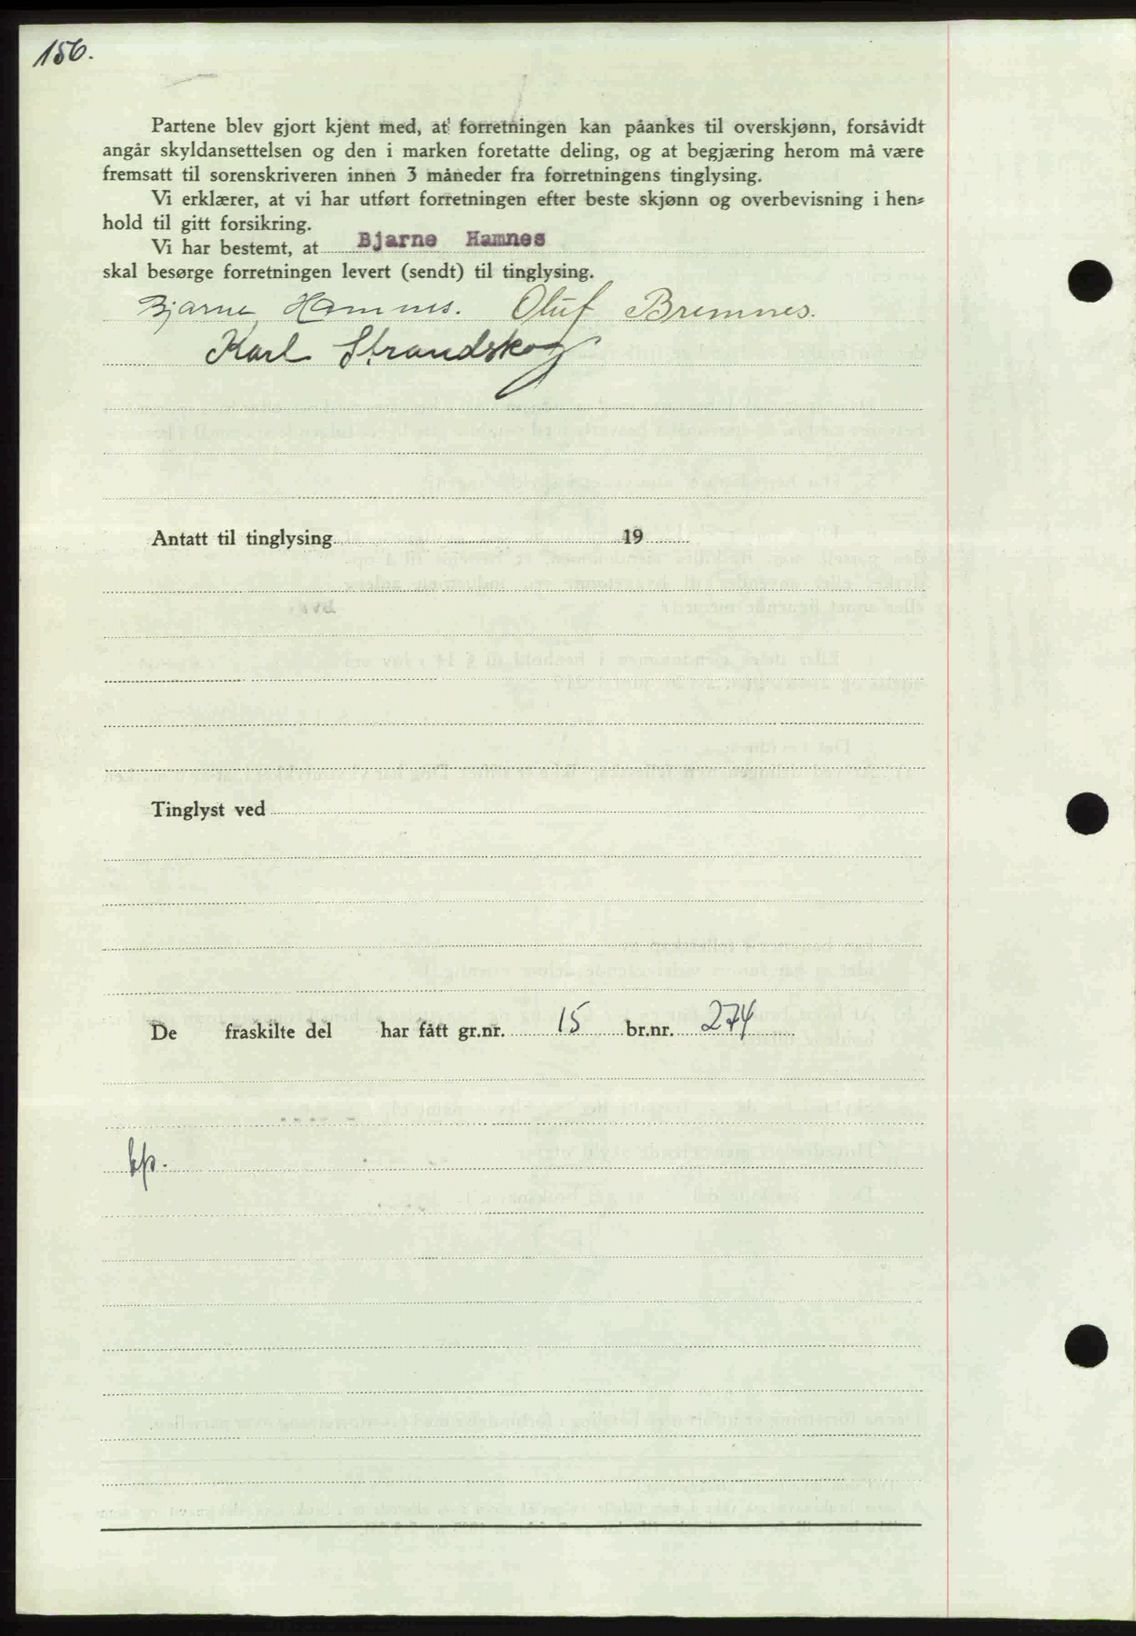 156.
Partene blev gjort kjent med, at forretningen kan påankes til overskjønn, forsåvidt
angår skyldansettelsen og den i marken foretatte deling, og at begjæring herom må være
fremsatt til sorenskriveren innen 3 måneder fra forretningens tinglysing.
Vi erklærer, at vi har utført forretningen efter beste skjønn og overbevisning i hen-
hold til gitt forsikring.
Vi har bestemt, at Bjarne Hamnes
skal besørge forretningen levert (sendt) til tinglysing.
Bjarne Hamnes. Oluf Bremnes.
Karl Strandskog
Antatt til tinglysing 19
Tinglyst ved
De fraskilte del har fått gr.nr. 15 br.nr. 274
kp.